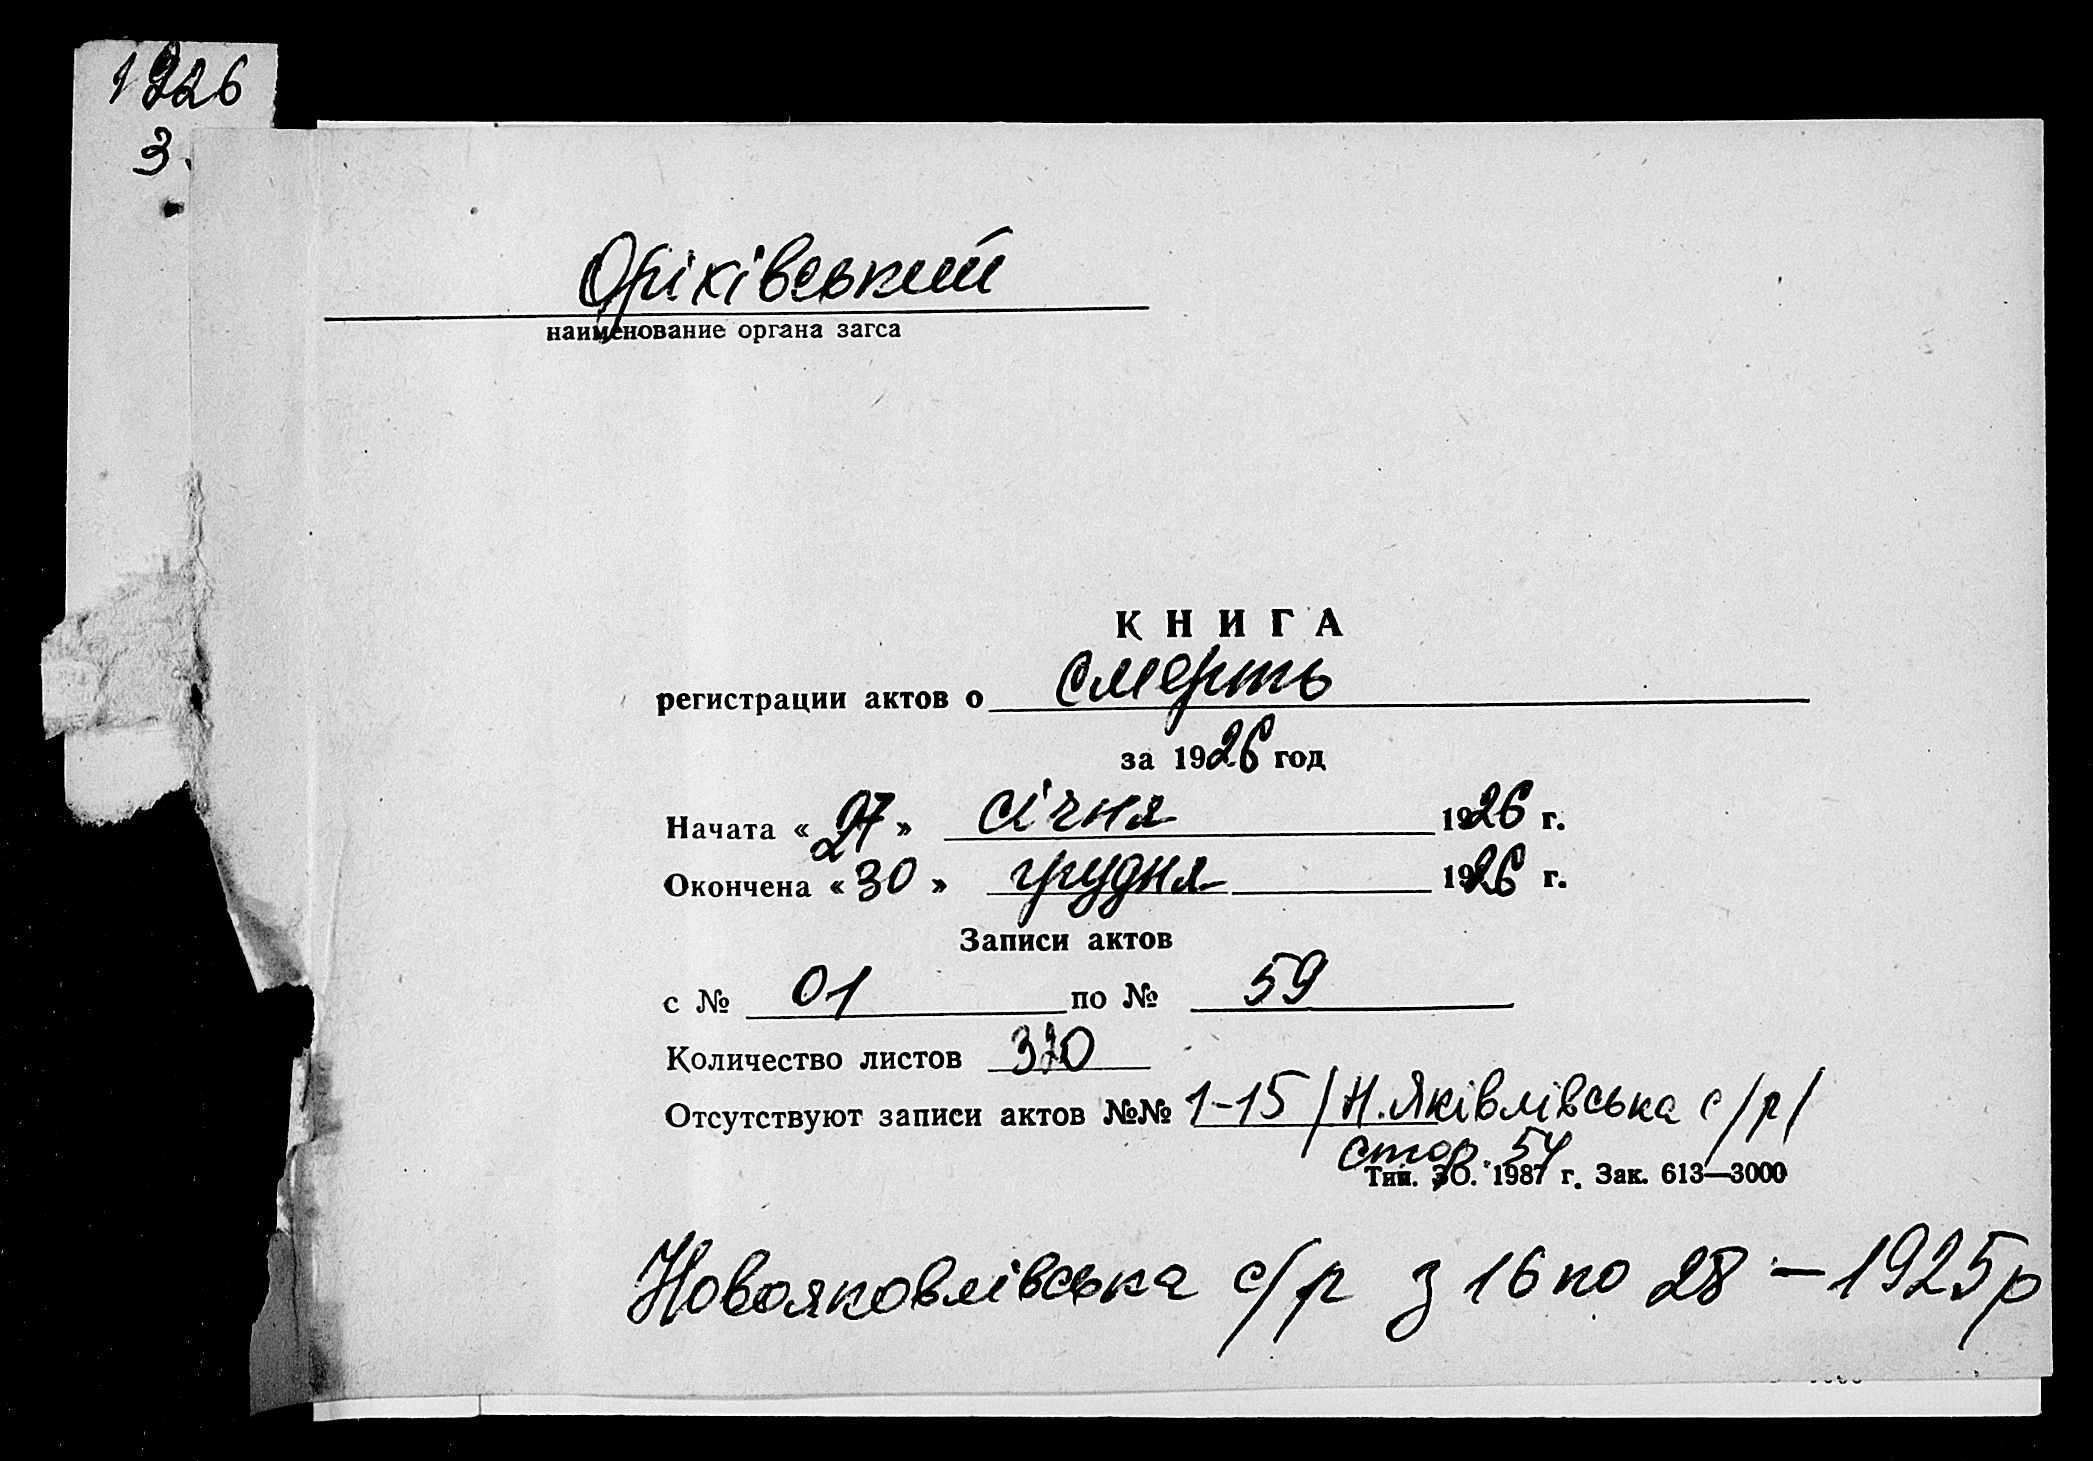 1926
3.
Оріхівський
наименование органа загса
КНИГА
регистрации актов о смерть
за 1926 год
Начата « 27 » січня 1926 г.
Окончена « 30 » грудня 1926 г.
Записи актов
с № 01 по № 59
Количество листов 320
Отсутствуют записи актов №№ 1-15 /Н. Яківлівська с/р/
стор. 54
Тип. ЗО. 1987 г. Зак. 613—3000
Новояковлівська с/р з 16 по 28 — 1925р